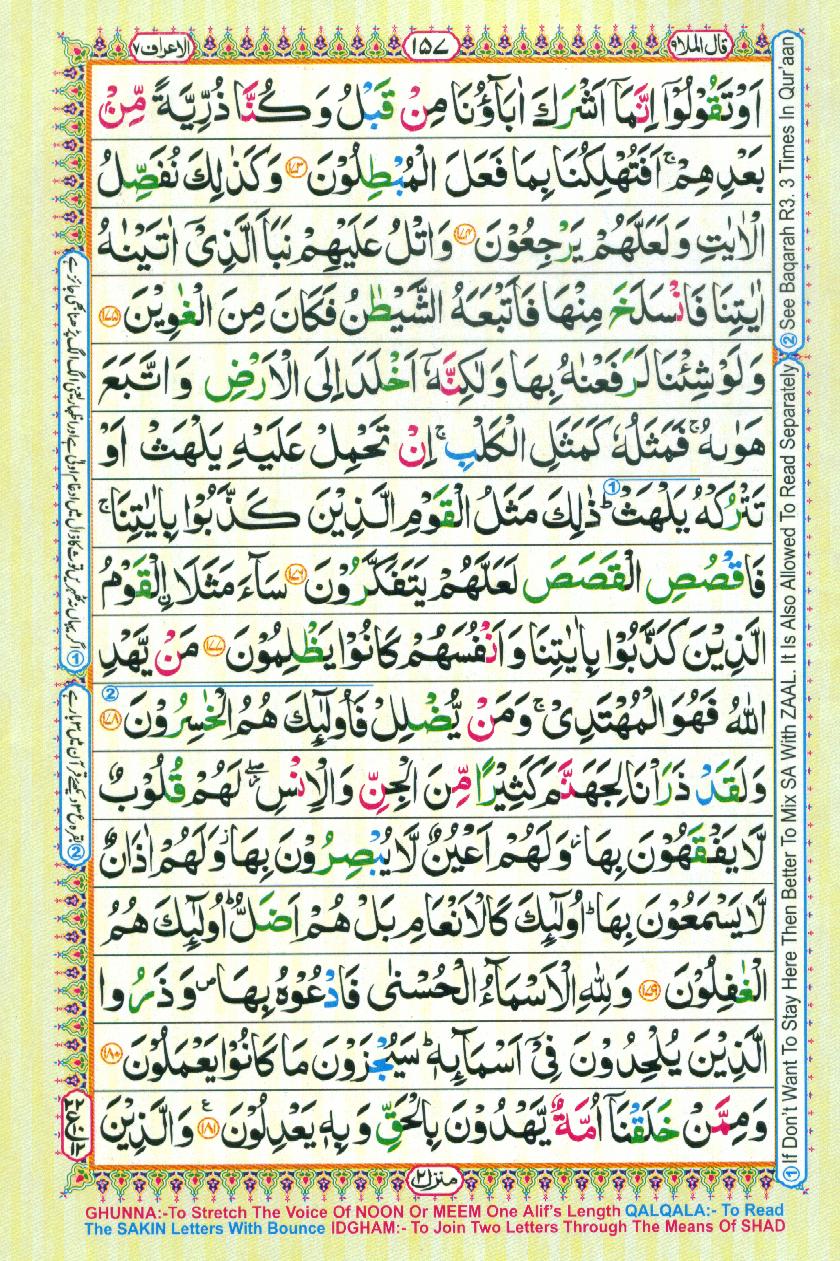 قال الملا ٩
١٥٧
الاعراف ٧
اَوْتَقُوْلُوْۤا اِنَّمَاۤ اَشْرَكَ اٰبَآؤُنَا مِنْ قَبْلُ وَكُنَّا ذُرِّيَّةً مِّنْۢ
بَعْدِهِمْ ۚ اَفَتُهْلِكُنَا بِمَا فَعَلَ الْمُبْطِلُوْنَ ﴿۱۷۳﴾ وَكَذٰلِكَ نُفَصِّلُ
الْاٰيٰتِ وَلَعَلَّهُمْ يَرْجِعُوْنَ ﴿۱۷۴﴾ وَاتْلُ عَلَيْهِمْ نَبَاَ الَّذِيْۤ اٰتَيْنٰهُ
اٰيٰتِنَا فَانْسَلَخَ مِنْهَا فَاَتْبَعَهُ الشَّيْطٰنُ فَكَانَ مِنَ الْغٰوِيْنَ ﴿۱۷۵﴾
وَلَوْ شِئْنَا لَرَفَعْنٰهُ بِهَا وَلٰكِنَّهٗۤ اَخْلَدَ اِلَى الْاَرْضِ وَاتَّبَعَ
هَوٰىهُ ۚ فَمَثَلُهٗ كَمَثَلِ الْكَلْبِ ۚ اِنْ تَحْمِلْ عَلَيْهِ يَلْهَثْ اَوْ
تَتْرُكْهُ يَلْهَثْ ؕ ① ذٰلِكَ مَثَلُ الْقَوْمِ الَّذِيْنَ كَذَّبُوْا بِاٰيٰتِنَا ۚ
فَاقْصُصِ الْقَصَصَ لَعَلَّهُمْ يَتَفَكَّرُوْنَ ﴿۱۷۶﴾ سَآءَ مَثَلَا ۨالْقَوْمُ
الَّذِيْنَ كَذَّبُوْا بِاٰيٰتِنَا وَاَنْفُسَهُمْ كَانُوْا يَظْلِمُوْنَ ﴿۱۷۷﴾ مَنْ يَّهْدِ
اللّٰهُ فَهُوَ الْمُهْتَدِيْ ۚ وَمَنْ يُّضْلِلْ فَاُولٰٓئِكَ هُمُ الْخٰسِرُوْنَ ② ﴿۱۷۸﴾
وَلَقَدْ ذَرَاْنَا لِجَهَنَّمَ كَثِيْرًا مِّنَ الْجِنِّ وَالْاِنْسِ ۖ لَهُمْ قُلُوْبٌ
لَّا يَفْقَهُوْنَ بِهَا ؗ وَلَهُمْ اَعْيُنٌ لَّا يُبْصِرُوْنَ بِهَا ؗ وَلَهُمْ اٰذَانٌ
لَّا يَسْمَعُوْنَ بِهَا ؕ اُولٰٓئِكَ كَالْاَنْعَامِ بَلْ هُمْ اَضَلُّ ؕ اُولٰٓئِكَ هُمُ
الْغٰفِلُوْنَ ﴿۱۷۹﴾ وَلِلّٰهِ الْاَسْمَآءُ الْحُسْنٰى فَادْعُوْهُ بِهَا ۪ وَذَرُوا
الَّذِيْنَ يُلْحِدُوْنَ فِيْۤ اَسْمَآئِهٖ ؕ سَيُجْزَوْنَ مَا كَانُوْا يَعْمَلُوْنَ ﴿۱۸۰﴾
وَمِمَّنْ خَلَقْنَاۤ اُمَّةٌ يَّهْدُوْنَ بِالْحَقِّ وَبِهٖ يَعْدِلُوْنَ ﴿۱۸۱﴾ ع وَالَّذِيْنَ
منزل ٢
① If Don't Want To Stay Here Then Better To Mix SA With ZAAL. It Is Also Allowed To Read Separately
② See Baqarah R3. 3 Times In Qur'aan
GHUNNA:-To Stretch The Voice Of NOON Or MEEM One Alif's Length QALQALA:- To Read
The SAKIN Letters With Bounce IDGHAM:- To Join Two Letters Through The Means Of SHAD